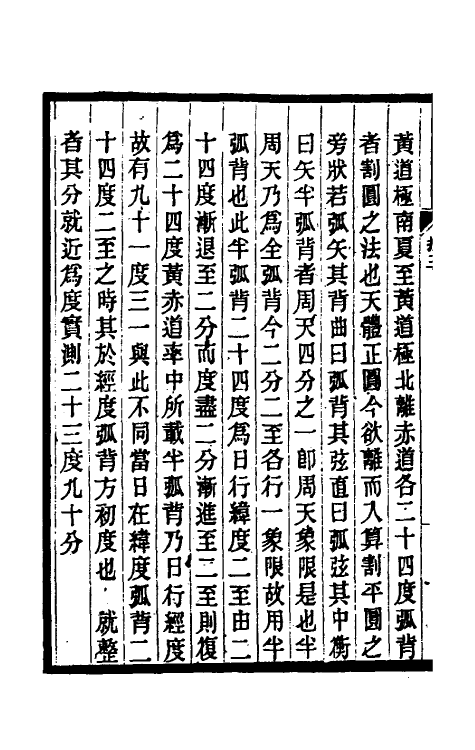 黃道極南夏至黃道極北離赤道各二十四度弧背
者割圓之法也天體正圓今欲離而入算割平圓之
旁狀若弧矢其背曲曰弧背其弦直曰弧弦其中衡
曰矢半弧背者周天四分之一卽周天象限是也半
周天乃爲全弧背今二分二至各行一象限故用半
弧背也此半弧背二十四度爲日行緯度二至由二
十四度漸退至二分而度盡二分漸進至二至則復
爲二十四度黃赤道率中所載半弧背乃日行經度
故有九十一度三一與此不同當日在緯度弧背二
十四度二至之時其於經度弧背方初度也 就整
者其分就近爲度實測二十三度九十分